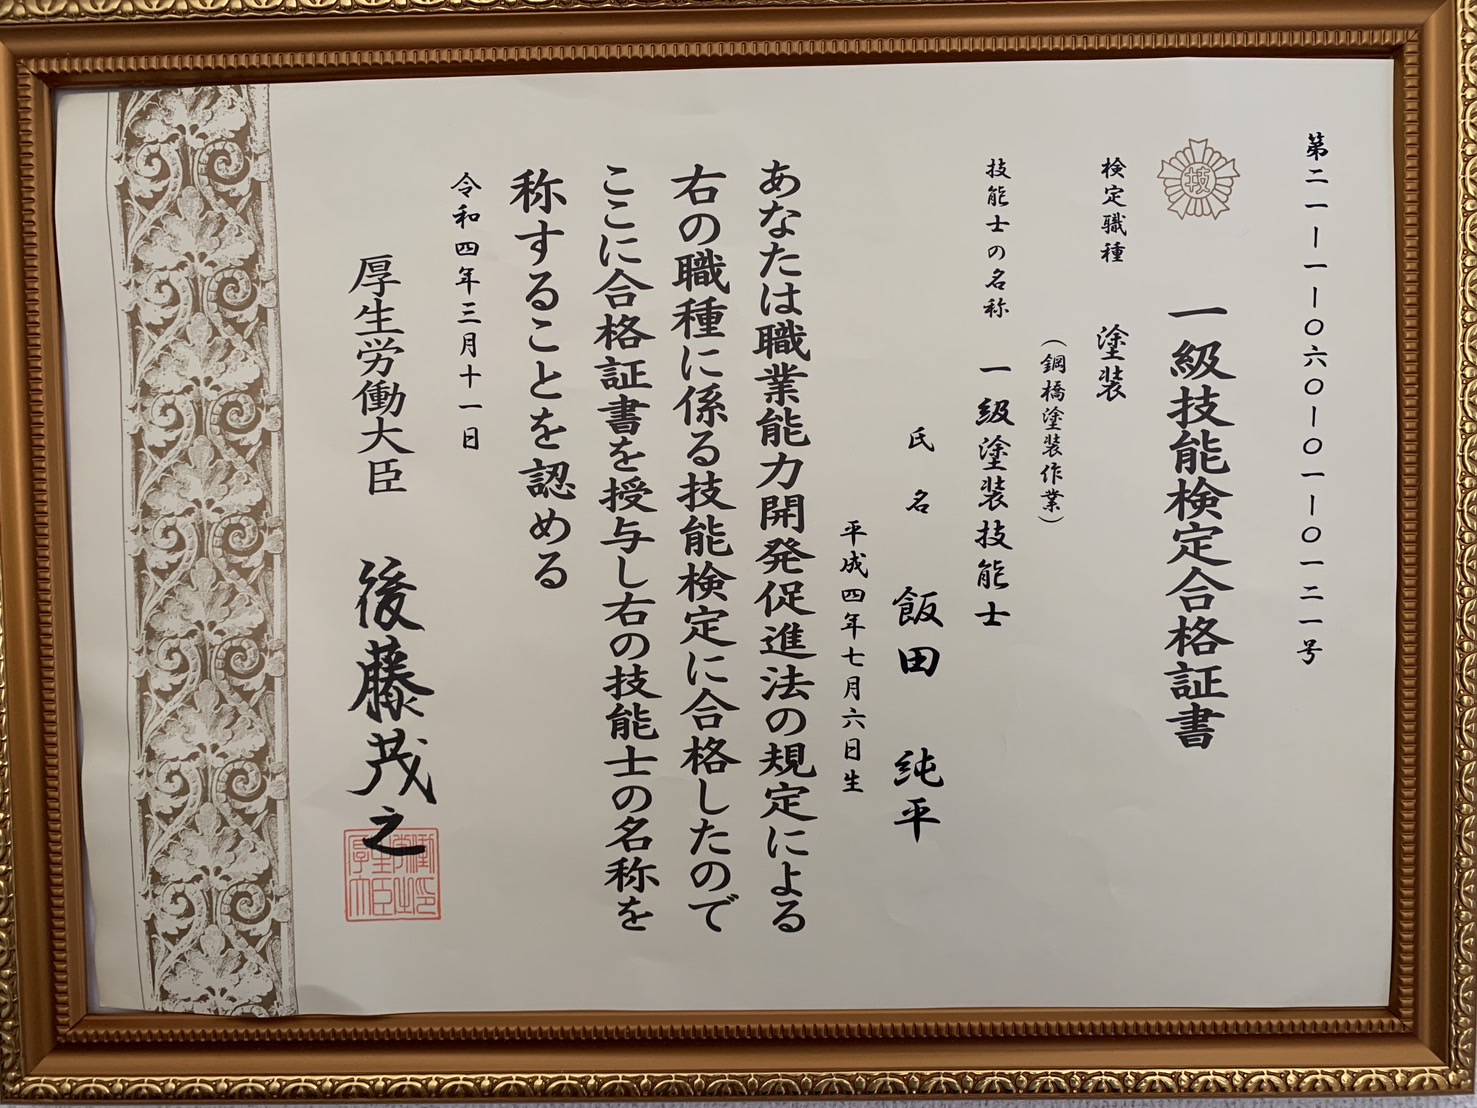 第二一ー一ー〇六〇ー〇一ー〇一二一号
技
一級技能検定合格証書
検定職種 塗装
（鋼橋塗装作業）
技能士の名称 一級塗装技能士
氏名 飯田 純平
平成四年七月六日生
あなたは職業能力開発促進法の規定による
右の職種に係る技能検定に合格したので
ここに合格証書を授与し右の技能士の名称を
称することを認める
令和四年三月十一日
厚生労働大臣 後藤茂之
厚生労働大臣之印